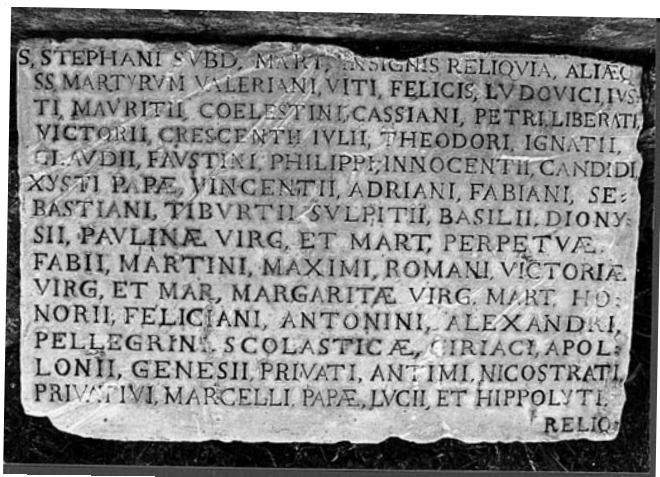 S, STEPHANI SVBD, MART, INSIGNIS RELIQVIA, ALIÆQ
SS, MARTYRVM VALERIANI, VITI, FELICIS, LVDOVICI, IVS-
TI, MAVRITII, COELESTINI, CASSIANI, PETRI, LIBERATI,
VICTORII, CRESCENTII IVLII, THEODORI, IGNATII,
CLAVDII, FAVSTINI, PHILIPPI, INNOCENTII, CANDIDI,
XYSTI PAPÆ, VINCENTII, ADRIANI, FABIANI, SE-
BASTIANI, TIBVRTII SVLPITII, BASILII, DIONY-
SII, PAVLINÆ VIRG, ET MART, PERPETVÆ,
FABII, MARTINI, MAXIMI, ROMANI, VICTORIÆ
VIRG, ET MAR, MARGARITÆ VIRG, MART, HO-
NORII, FELICIANI, ANTONINI, ALEXANDRI,
PELLEGRINI, SCOLASTICÆ, CIRIACI, APOL-
LONII, GENESII, PRIVATI, ANTIMI, NICOSTRATI,
PRIVATIVI, MARCELLI PAPÆ, LVCII, ET HIPPOLYTI,
RELIQ: